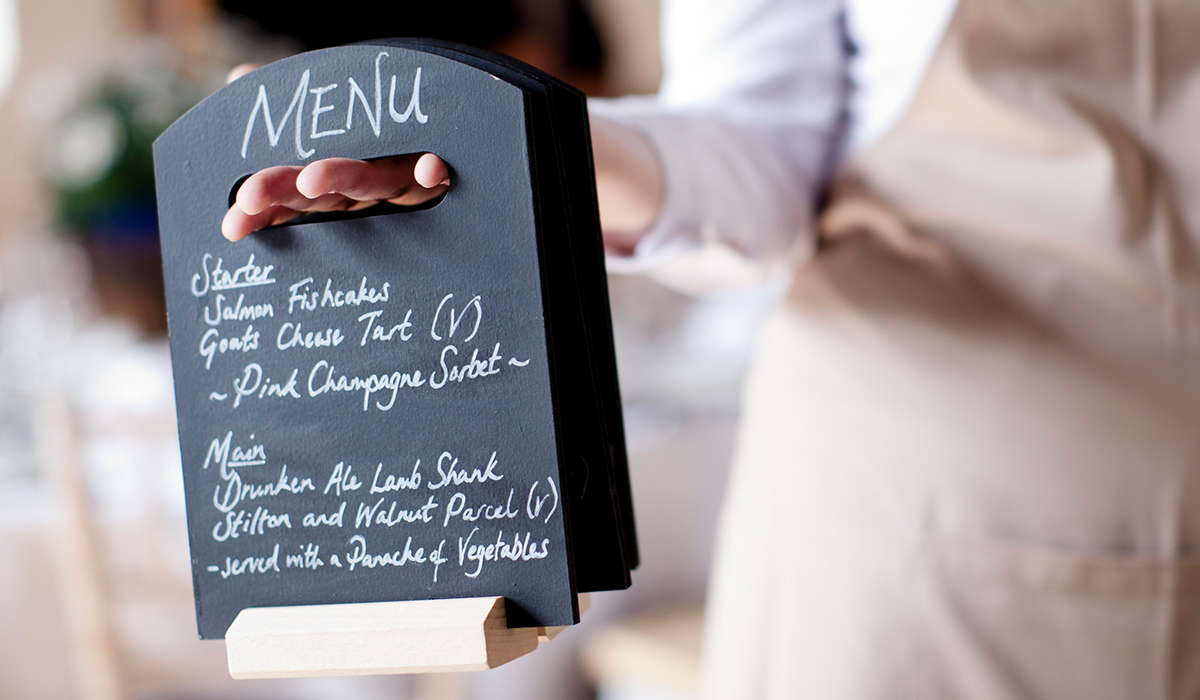 MENU
Starter
Salmon Fishcakes
Goats Cheese Tart (V)
~ Pink Champagne Sorbet ~
Main
Drunken Ale Lamb Shank
Stilton and Walnut Parcel (V)
- served with a Panache of Vegetables